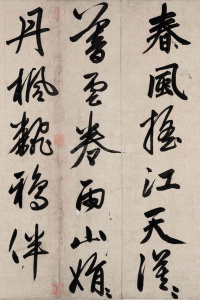 春風搖江天漠〻
暮雲卷雨山娟〻
丹楓飜鴉伴